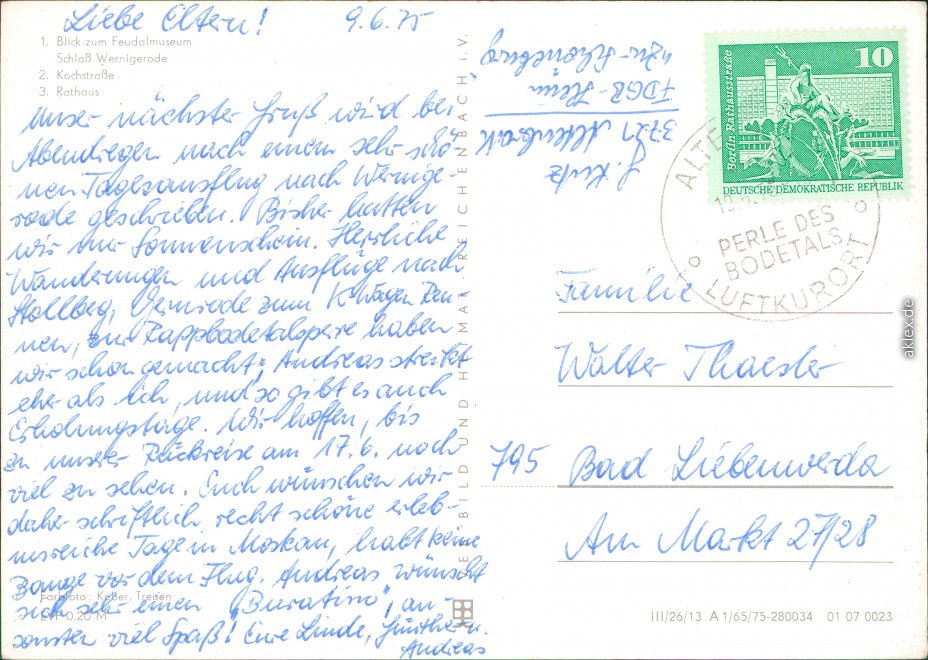 Liebe Eltern! 9.6.75
1. Blick zum Feudalmuseum
Schloß Wernigerode
2. Kochstraße
3. Rathaus
Unser nächster Gruß wird bei
Abendregen nach einem sehr schö-
nen Tagesausflug nach Wernige-
rode geschrieben. Bisher hatten
wir nur Sonnenschein. Herrliche
Wanderungen und Ausflüge nach
Stollberg, Gernrode zum K-Wagen Ren-
nen, zur Rappbodetalsperre haben
wir schon gemacht; Andreas streikt
eher als ich, und so gibt es auch
Erholungstage. Wir hoffen, bis
zu unserer Rückreise am 17.6. noch
viel zu sehen. Euch wünschen wir
daher schriftlich recht schöne erleb-
nisreiche Tage in Moskau, habt keine
Bange vor dem Flug. Andreas wünscht
sich sehr einen "Buratino", an-
sonsten viel Spaß! Eure Linde, Günther u.
Andreas
Farbfoto: Kober, Treuen
EVP 0.20 M
VEB BILD UND HEIMAT REICHENBACH i. V.
G. Kutz
3721 Altenbrak
FDGB-Heim
Schöneburg
10
Berlin-Rathausstraße
DEUTSCHE DEMOKRATISCHE REPUBLIK
ALTE
PERLE DES
BODETALS
LUFTKURORT
Familie
Walter Thaesler
795 Bad Liebenwerda
Am Markt 27/28
III/26/13 A 1/65/75-280034 01 07 0023
aklex.de